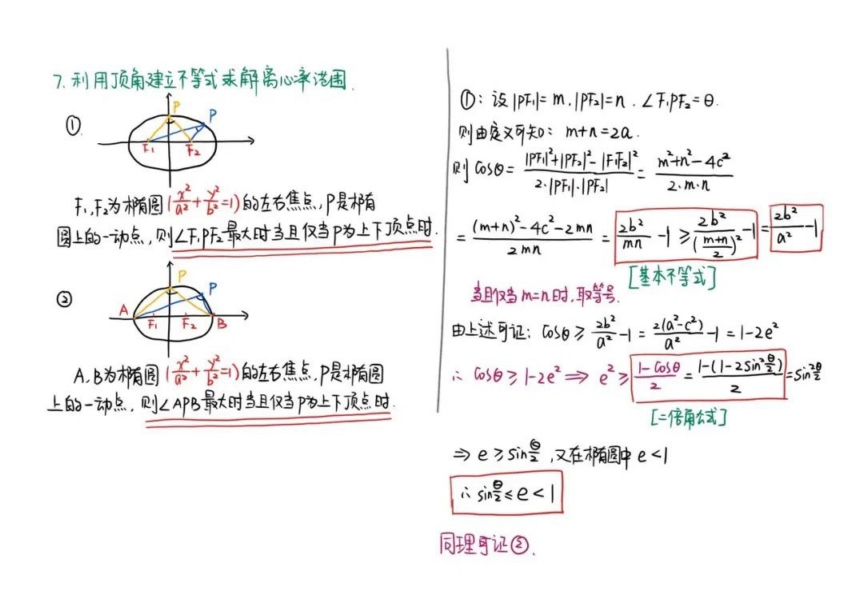 7. 利用顶角建立不等式求解离心率范围.
①
P
P
F₁
F₂
F₁,F₂为椭圆(x²/a²+y²/b²=1)的左右焦点,P是椭
圆上的一动点,则∠F₁PF₂最大时当且仅当P为上下顶点时.
②
P
P
A
F₁
F₂
B
A,B为椭圆(x²/a²+y²/b²=1)的左右焦点,P是椭圆
上的一动点,则∠APB最大时当且仅当P为上下顶点时.
①: 设|PF₁|=m,|PF₂|=n.∠F₁PF₂=θ.
则由定义可知: m+n=2a.
则 cosθ=(|PF₁|²+|PF₂|²-|F₁F₂|²)/(2·|PF₁|·|PF₂|)=(m²+n²-4c²)/(2·m·n)
=((m+n)²-4c²-2mn)/(2mn)=2b²/(mn)-1≥2b²/((m+n)/2)²-1=2b²/a²-1
[基本不等式]
当且仅当m=n时,取等号.
由上述可证: cosθ≥2b²/a²-1=2(a²-c²)/a²-1=1-2e²
∴ cosθ≥1-2e²⟹e²≥(1-cosθ)/2=(1-(1-2sin²θ/2))/2=sin²θ/2
[二倍角公式]
⇒e≥sinθ/2,又在椭圆中e<1
∴sinθ/2≤e<1
同理可证②.